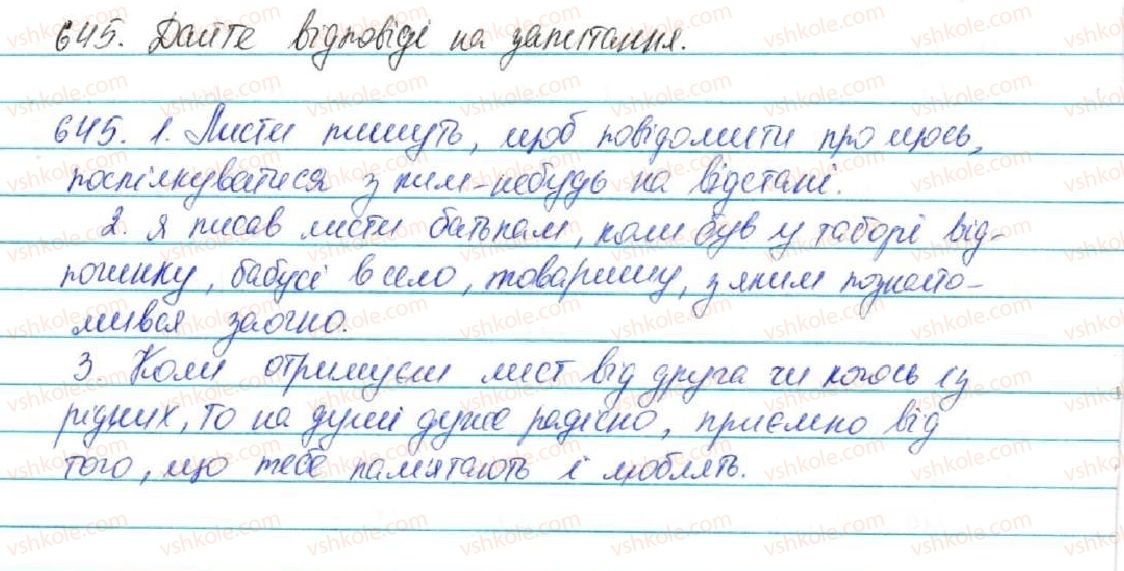 645. Дайте відповіді на запитання.
645. 1. Листи пишуть, щоб повідомити про щось,
поспілкуватися з ким-небудь на відстані.
2. Я писав листи батькам, коли був у таборі від-
починку, бабусі в село, товаришу, з яким познайо-
мився заочно.
3. Коли отримуєш лист від друга чи когось із
рідних, то на душі дуже радісно, приємно від
того, що тебе пам'ятають і люблять.